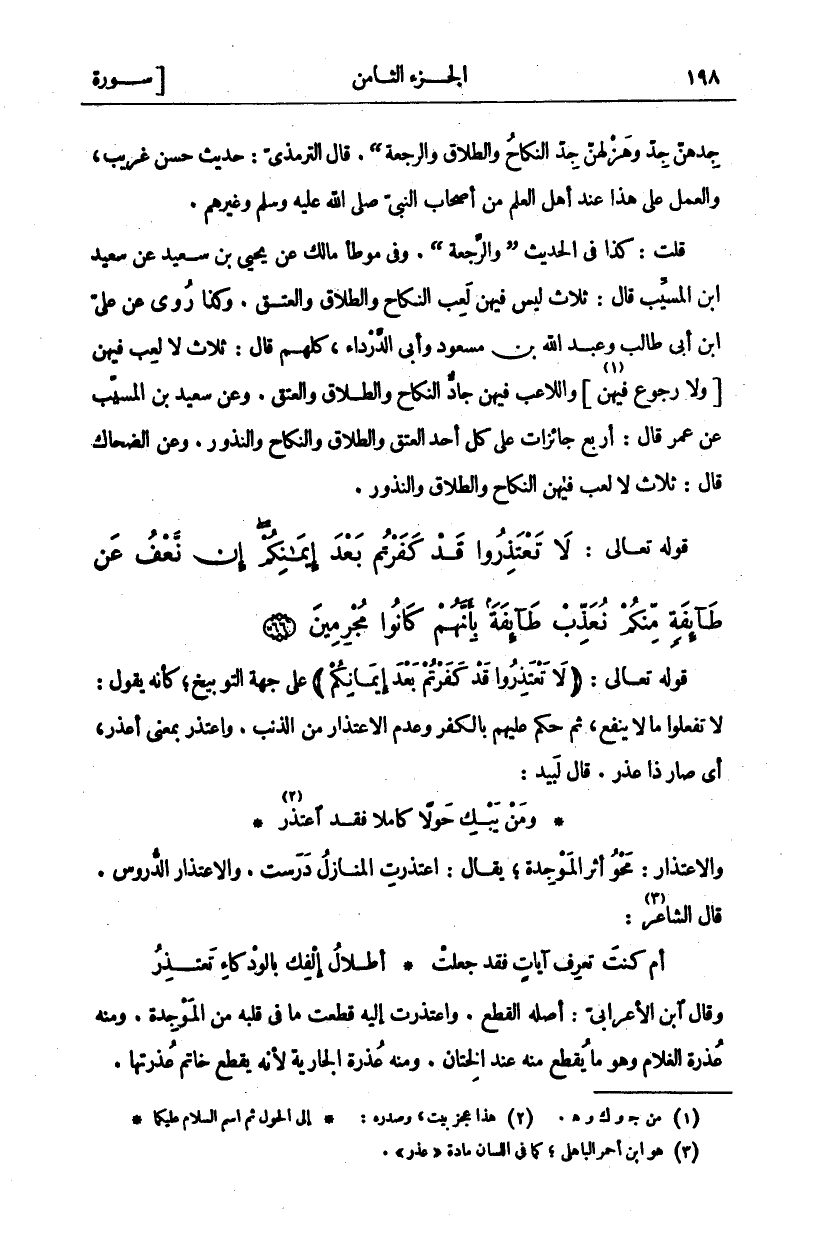 ١٩٨ الجـزء الثـامن [ ســورة
جِدهنّ جِدّ وهَزْلهنّ جِدّ النكاحُ والطلاق والرجعة” . قال الترمذىّ : حديث حسن غريب ،
والعمل على هذا عند أهل العلم من أصحاب النبىّ صلى الله عليه وسلم وغيرهم .
قلت : كذا فى الحديث ”والرَّجعة“ . وفى موطأ مالك عن يحيى بن سـعيد عن سعيد
ابن المسيِّب قال : ثلاث ليس فيهن لَعِب النـكاح والطلاق والعتـق . وكذا رُوى عن علىّ
ابن أبى طالب وعبـد الله بن مسعود وأبى الدَّرْداء ، كلهـم قال : ثلاث لا لعب فيهن
[ ولا رجوع فيهن (١) ] واللاعب فيهن جادٌّ النكاح والطـلاق والعتق . وعن سعيد بن المسيّب
عن عمر قال : أربع جائزات على كل أحد العتق والطلاق والنكاح والنذور . وعن الضحاك
قال : ثلاث لا لعب فيهن النكاح والطلاق والنذور .
قوله تعـالى : لَا تَعْتَذِرُوا قَدْ كَفَرْتُم بَعْدَ إِيمَـٰنِكُمْ ۚ إِن نَّعْفُ عَن
طَآئِفَةٍ مِّنكُمْ نُعَذِّبْ طَآئِفَةَۢ بِأَنَّهُمْ كَانُوا مُجْرِمِينَ ﴿٦٦﴾
قوله تعـالى : ﴿ لَا تَعْتَذِرُوا قَدْ كَفَرْتُمْ بَعْدَ إِيمَـانِكُمْ ﴾ على جهة التوبيخ ؛ كأنه يقول :
لا تفعلوا ما لا ينفع ، ثم حكم عليهم بالكفر وعدم الاعتذار من الذنب . واعتذر بمعنى أعذر ،
أى صار ذا عذر . قال لَبِيد :
* ومَنْ يَبْـكِ حَوْلًا كاملا فقـد ٱعتذر (٢) *
والاعتذار : مَحْوُ أثر المَوْجِدة ؛ يقـال : اعتذرتِ المنـازلُ دَرَست . والاعتذار الدُّروس .
قال الشاعر (٣) :
أم كنتَ تعرِف آياتٍ فقد جعلتْ * أطـلالُ إلْفِك بالوَدْكاء تَعتـذِرُ
وقال ٱبن الأعرابىّ : أصله القطع . واعتذرت إليه قطعت ما فى قلبه من المَوْجِدة . ومنه
عُذرة الغلام وهو ما يُقطع منه عند الخِتان . ومنه عُذرة الجارية لأنه يقطع خاتم عُذرتها .
(١) من جـ و ك و هـ . (٢) هذا عجز بيت ، وصدره : * إلى الحول ثم اسم السلام عليكما *
(٣) هو ابن أحمر الباهلى ؛ كما فى اللسان مادة « عذر » .